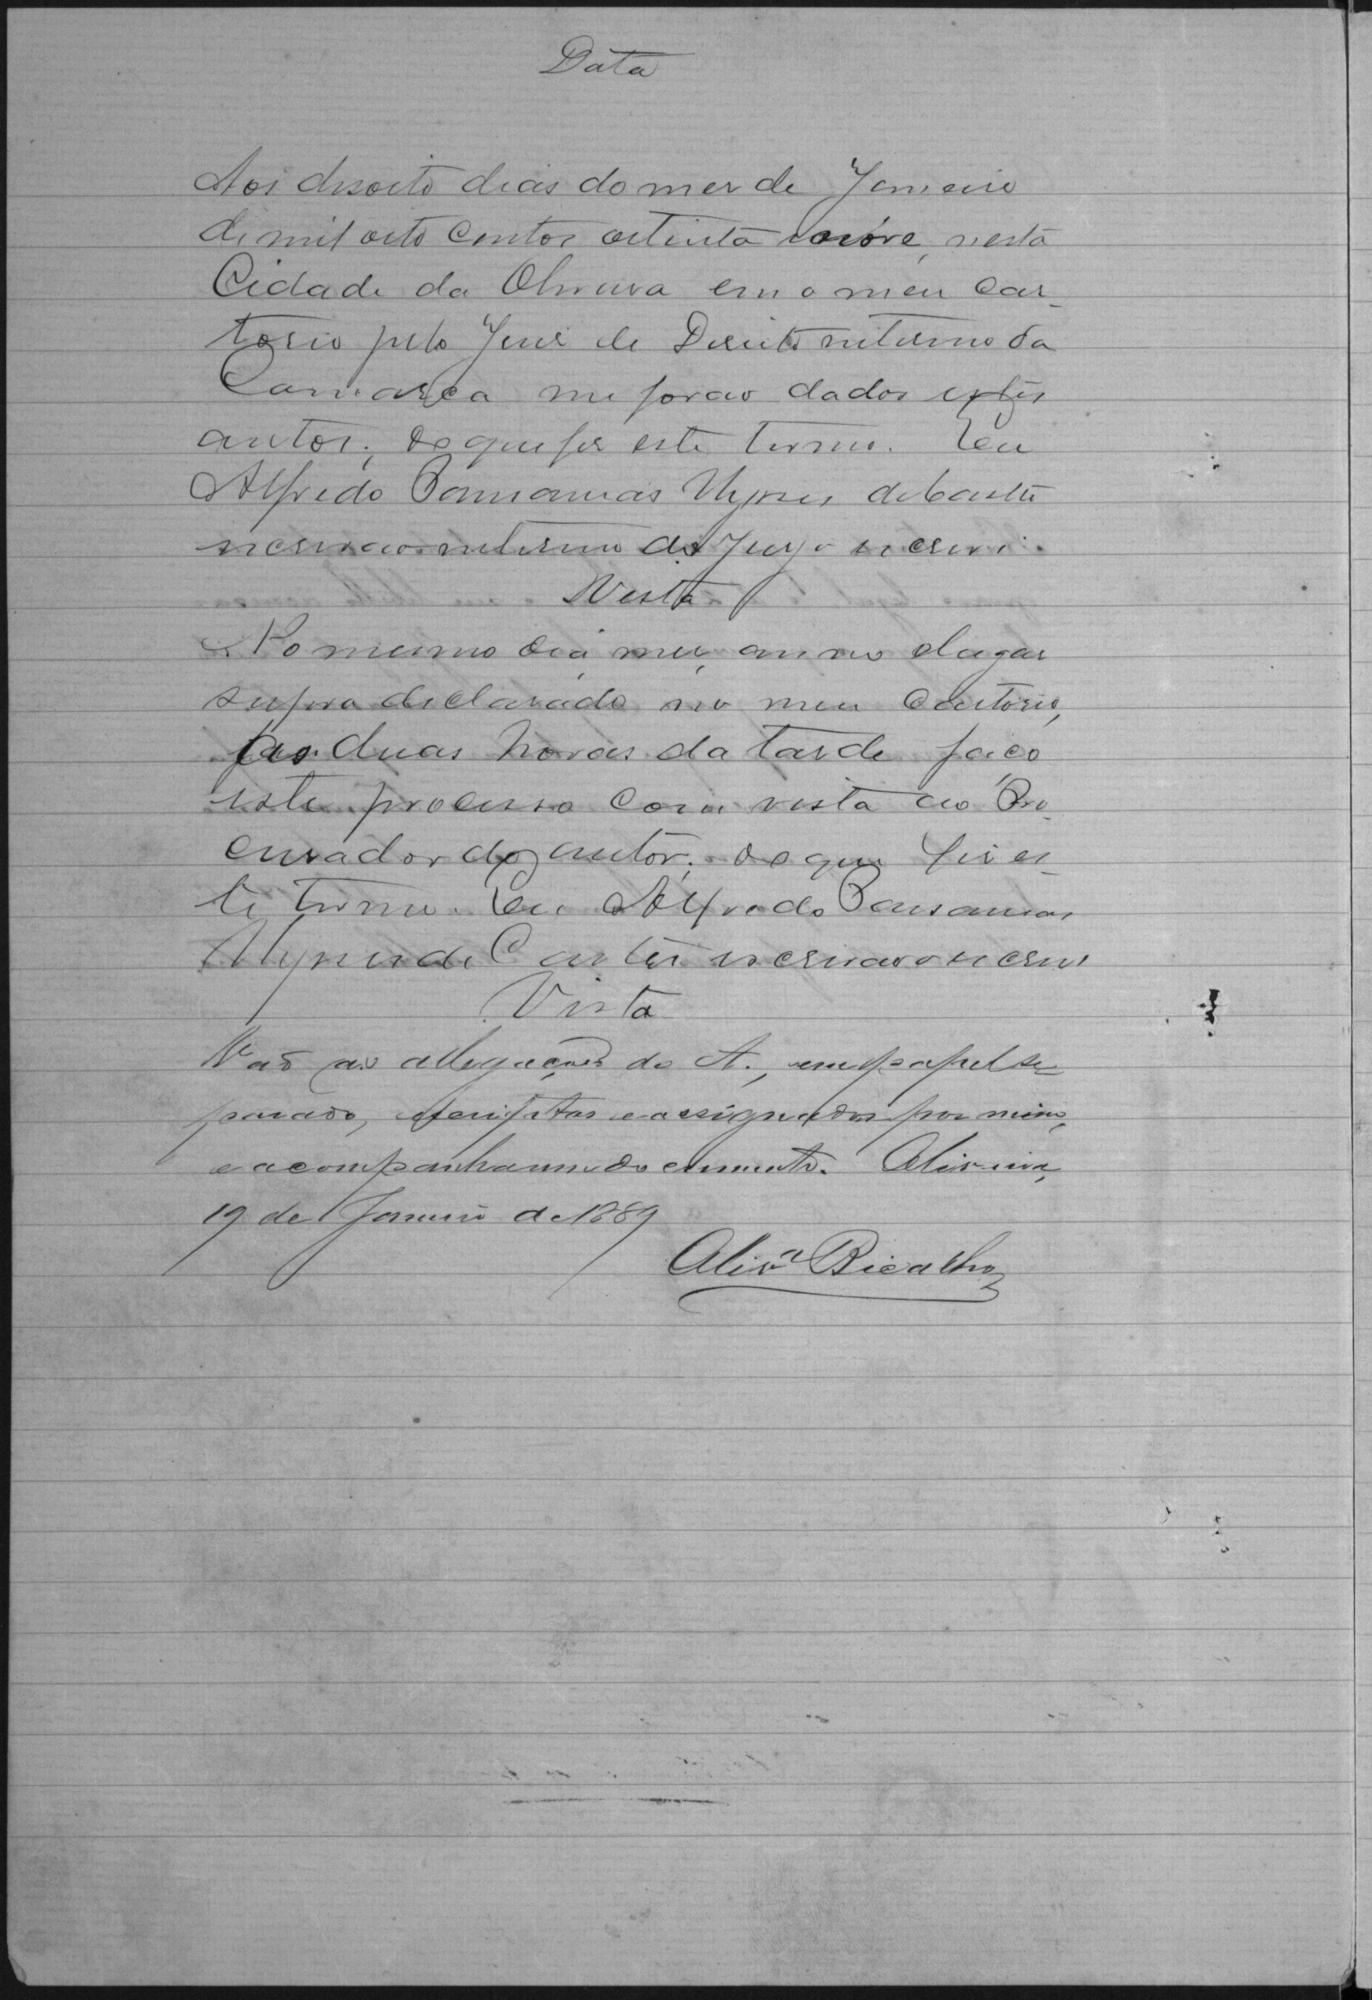 Data
Aos desoito dias do mes de Janeiro
de mil oito centos oitenta e nóve, nesta
Cidade da Oliveira em o meu Car-
torio pelo Juiz de Direito interino da
Comarca me forão dados estes
autos; do que fiz este termo. Eu
Alfredo Pausanias de Castro
escrivão interino do Juizo escrevi.
Vista
No mesmo dia, mez, anno e lugar
supra declarado no meu Cartorio,
as duas horas da tarde faço
este processo com vista ao Pro-
curador do autor; do que fiz es-
te termo. Eu Alfredo Pausanias
de Castro escrivão o escrevi
Vista
Vão as allegações do A., em papel se-
parado, escriptas e assignadas por mim,
e acompanham documento. Oliveira,
19 de Janeiro de 1889
Olivª Bicalho